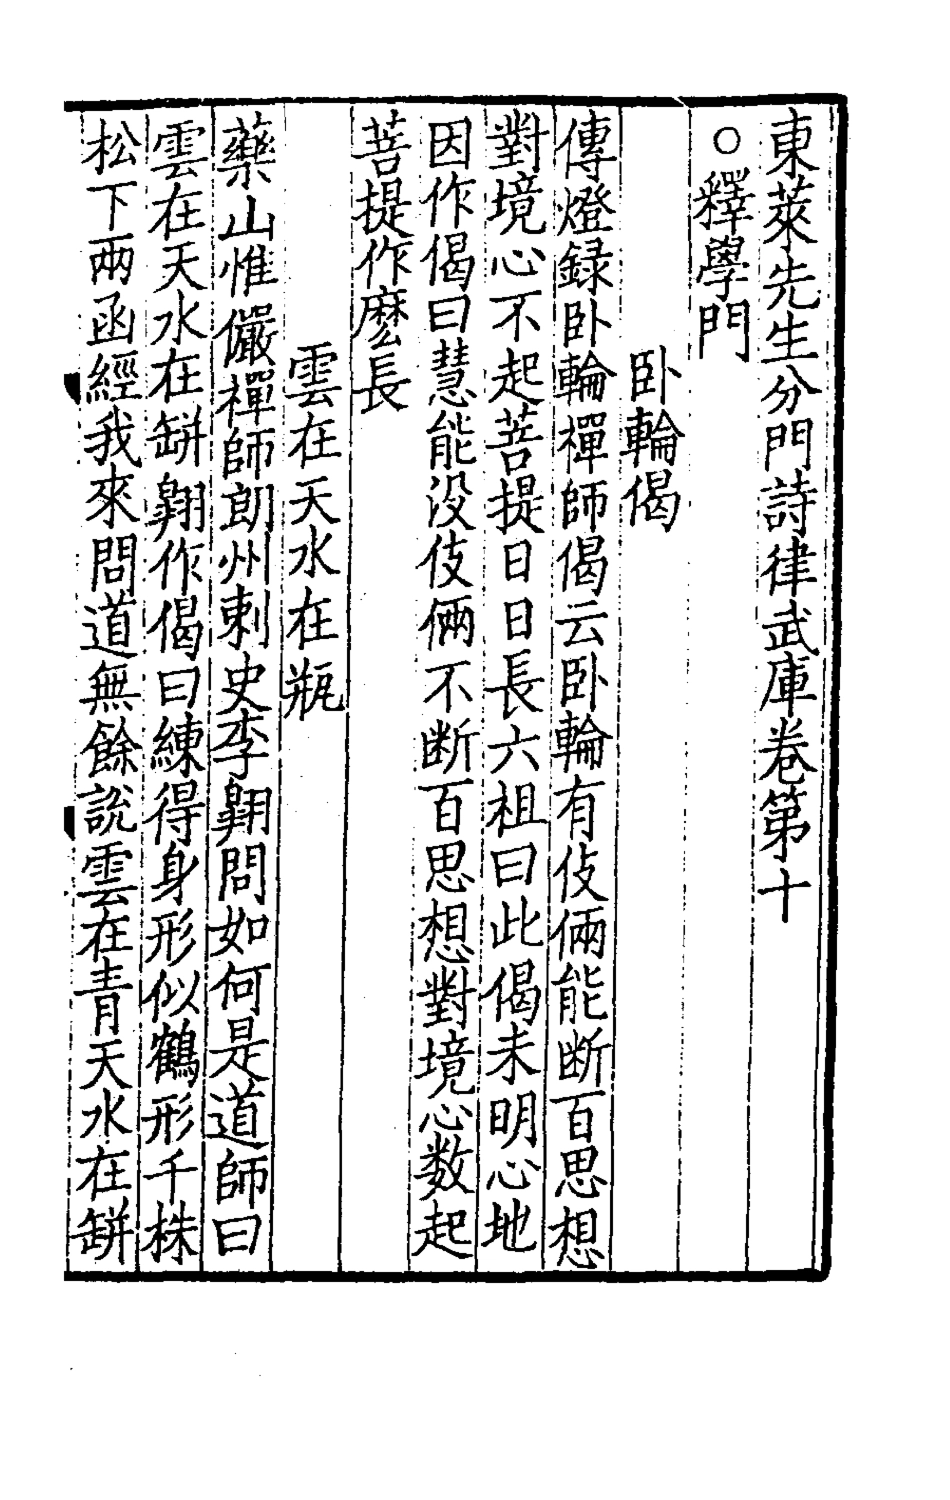 東萊先生分門詩律武庫卷第十
○釋學門
卧輪偈
傳燈録卧輪禪師偈云卧輪有伎倆能断百思想
對境心不起菩提日日長六祖曰此偈未明心地
因作偈曰慧能没伎倆不断百思想對境心数起
菩提作麽長
雲在天水在瓶
藥山惟儼禪師朗州刺史李翱問如何是道師曰
雲在天水在缾翱作偈曰練得身形似鶴形千株
松下兩函經我來問道無餘説雲在青天水在缾